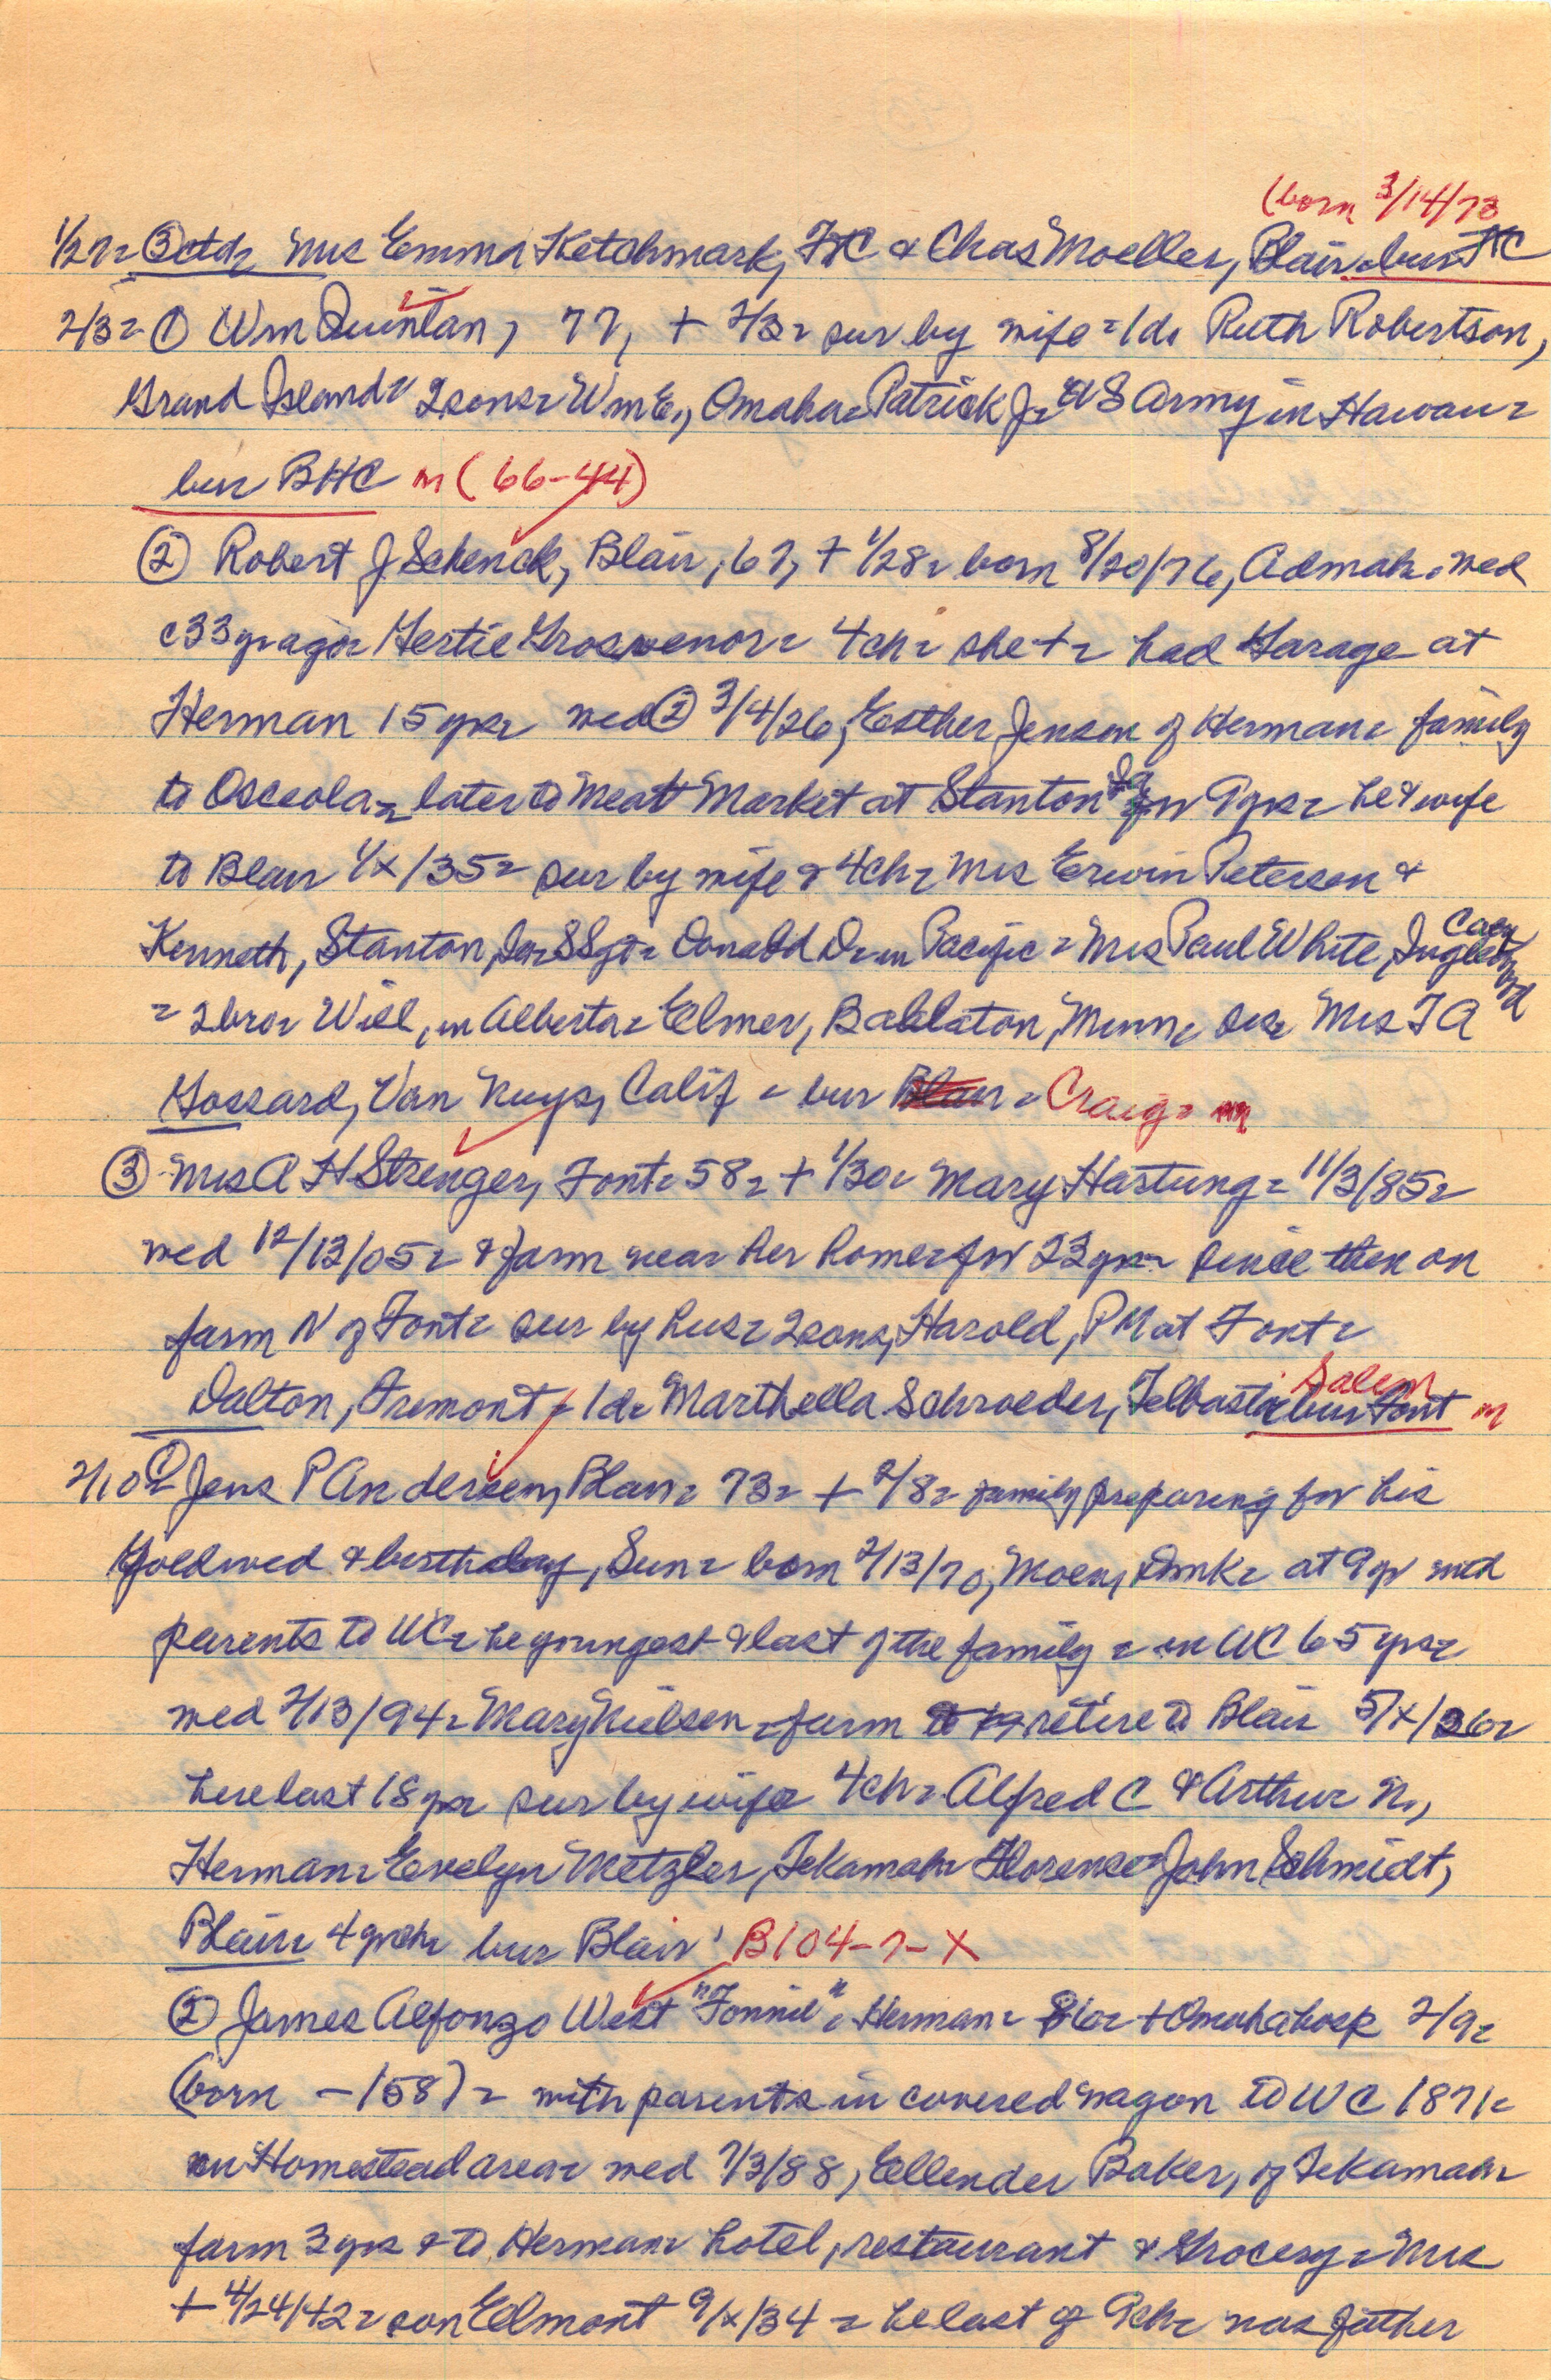 (born 3/14/73
1/27= 3 ctd= Mrs Emma Ketchmark, FtC & Chas Moeller, Blair = bur FtC
2/3= 1 Wm Quinlan, 77, + 2/3= sur by wife = 1d= Ruth Robertson,
Grand Island= 2sons= Wm E., Omaha= Patrick J= US Army in Hawaii=
bur BHC m (66-44)
2 Robert J Schenck, Blair, 67, + 1/28= born 8/20/76, Admah= wed
c33yr ago= Gertie Grosvenor= 4ch= she += had Garage at
Herman 15yrs= wed 2 3/4/26, Esther Jensen of Herman= family
to Osceola= later to Meat Market at Stanton Ia for 9yrs= he & wife
to Blair 1/x/35= sur by wife & 4ch= Mrs Erwin Peterson &
Kenneth, Stanton, Ia= SSgt= Donald D= in Pacific = Mrs Paul White, Inglewood Calif
= 2bro= Will, in Alberta= Elmer, Balaton, Minn= sis= Mrs F A
Gossard, Van Nuys, Calif = bur Blair = Craig= m
3 Mrs A H Strenger, Font= 58= + 1/30= Mary Hartung= 11/3/85=
wed 12/13/05= & farm near her home= for 23yrs= since then on
farm N of Font= sur by hus= 2sons, Harold, PM at Font=
Dalton, Fremont = 1d= Marthella Schroeder, Telbasta= bur Font Salem m
2/10= 1 Jens P Andersen, Blair= 73= + 2/8= family preparing for his
Goldwed & birthday, Sun= born 2/13/70, Moen, Dnmk= at 9yr with
parents to WC= he youngest & last of the family = in WC 65yrs=
wed 2/13/94= Mary Nielsen = farm to 19 retire to Blair 5/x/26=
here last 18yrs= sur by wife 4ch= Alfred C & Arthur N.,
Herman= Evelyn Metzler, Tekamah= Florence= John Schmidt,
Blair= 4grch= bur Blair B104-7-X
2 James Alfonzo West "Fonnie", Herman= 86= + Omaha hosp 2/9=
(born -/58) = with parents in covered wagon to WC 1871=
on Homestead area= wed 7/3/88, Ellender Baker, of Tekamah=
farm 3yrs & to Herman= hotel, restaurant & Grocery= Mrs
+ 4/24/42= son Elmont 9/x/34 = he last of 9ch= was father